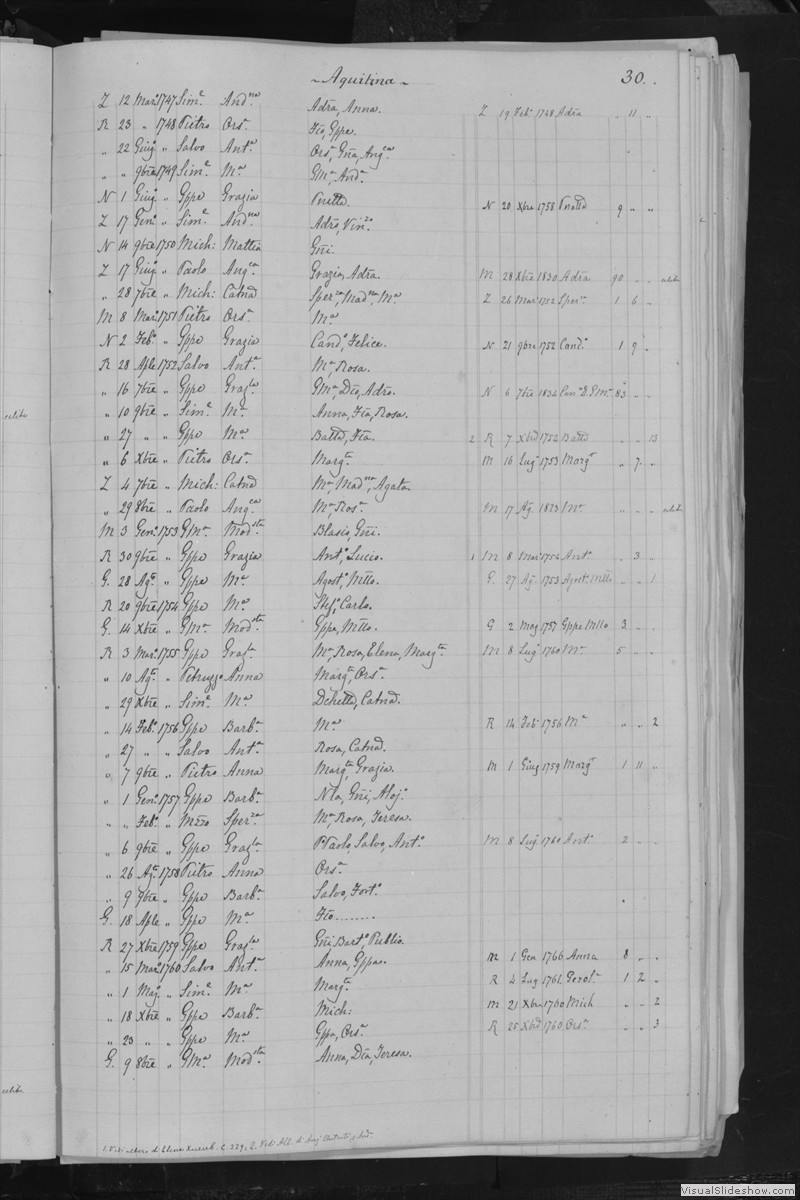 ~ Aquilina ~ 30.
Z 12 Mar. 1747 Sim.e And.na Adra, Anna. Z 19 Feb. 1748 Adra „ 11 „
R 23 „ 1748 Pietro Ors.a Fco, Gppe.
„ 22 Giug. „ Salvo Ant.a Ors.a, Gña, Ang.ca
„ „ 9bre 1749 Sim.e M.a GM.a, And.a
N 1 Giug. „ Gppe Grazia N 20 Xbre 1758 9 „ „
Z 17 Gen. „ Sim.e And.na Adreo, Vin.zo
N 14 9bre 1750 Mich: Mattia Gñi.
Z 17 Giug. „ Paolo Ang.ca Grazia, Adra. M 28 Xbre 1830 Adra 90 „ „
„ 28 7bre „ Mich: Catnd Sper.za, Mad.na, M.a Z 26 Mar. 1752 Sper.za 1 6 „
M 8 Mar. 1751 Pietro Ors.a M.a
N 2 Feb. „ Gppe Grazia Cand.o, Felice. N 21 9bre 1752 Cand.o 1 9 „
R 28 Aple 1752 Salvo Ant.a M.a, Rosa.
„ 16 7bre „ Gppe Graz.la GM.a, Dco, Adreo. N 6 7bre 1834 83 „ „
„ 10 9bre „ Sim.e M.a Anna, Fca, Rosa.
„ 27 „ „ Gppe M.a Battd, Fca. 2 R 7 Xbre 1752 Battd „ „ 13
„ 6 Xbre „ Pietro Ors.a Marg.ta M 16 Lug. 1753 Marg.ta „ 7 „
Z 4 7bre „ Mich: Catnd M.a, Mad.na, Agata.
„ 29 8bre „ Paolo Ang.ca M.a, Ros.a M 17 Ag. 1823 M.a „ „ „
M 3 Gen. 1753 GM.a Mod.sta Blasio, Gñi.
R 30 9bre „ Gppe Grazia Ant.o, Lucio. 1 M 8 Mar. 1754 Ant.o „ 3 „
G. 28 Ag. „ Gppe M.a Agost.o, Mtteo. G. 27 Ag. 1753 Agost. Mtteo „ „ 1
R 20 9bre 1754 Gppe M.a Stef.o, Carlo.
G. 14 Xbre „ GM.a Mod.sta Gppe, Mtteo. G 2 Mag 1757 Gppe Mtteo 3 „ „
R 3 Mar. 1755 Gppe Graz.a M.a, Rosa, Elena, Marg.ta M 8 Lug. 1760 M.a 5 „ „
„ 10 Ag. „ Petruzzo Anna Marg.ta, Ors.a
„ 29 Xbre „ Sim.e M.a Dchella, Catnd.
„ 14 Feb. 1756 Gppe Barb.a M.a R 14 Feb. 1756 M.a „ „ 2
„ 27 „ „ Salvo Ant.a Rosa, Catnd.
„ 7 9bre „ Pietro Anna Marg.ta, Grazia. M 1 Giug 1759 Marg.ta 1 11 „
„ 1 Gen. 1757 Gppe Barb.a Nla, Gñi, Aloj.o
„ „ Feb. „ Sper.za M.a, Rosa, Teresa.
„ 6 9bre „ Gppe Graz.la Paolo, Salvo, Ant.o M 8 Lug. 1760 Ant.o 2 „ „
„ 26 Ag. 1758 Pietro Anna Ors.a
„ 9 9bre „ Gppe Barb.a Salvo, Fort.o
G. 18 Aple „ Gppe M.a Fco........
R 27 Xbre 1759 Gppe Graz.la Gñi Bart.o, Publio.
„ 15 Mar. 1760 Salvo Ant.a Anna, Gppa. M 1 Gen 1766 Anna 8 „ „
„ 1 Mag. „ Sim.e M.a Marg.ta R 4 Lug 1761 1 2 „
„ 18 Xbre „ Gppe Barb.a Mich: M 21 Xbre 1760 Mich „ „ 2
„ 23 „ „ Gppe M.a Gppa, Ors.a R 25 Xbre 1760 Ors.a „ „ 3
G. 9 8bre „ GM.a Mod.sta Anna, Dca, Teresa.
VisualSlideshow.com